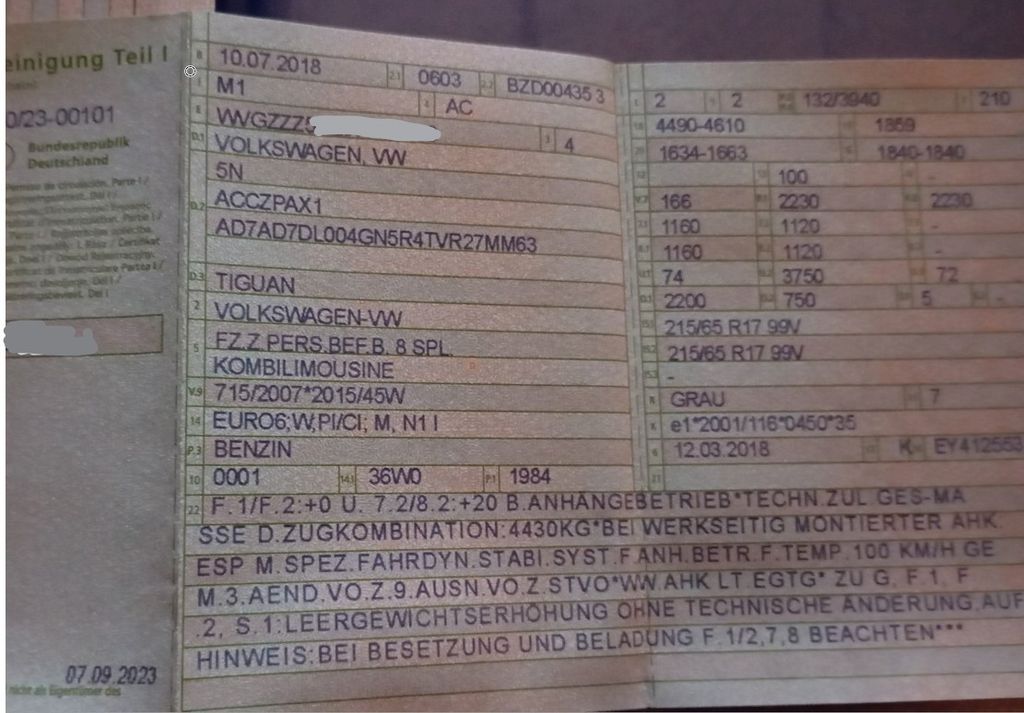 einigung Teil I
0/23-00101
Bundesrepublik
Deutschland
07.09.2023
nicht als Eigentümer des
B 10.07.2018 2.1 0603 2.2 BZD00435 3
J M1 4 AC
E WVGZZZ5 3 4
D.1 VOLKSWAGEN, VW
5N
D.2 ACCZPAX1
AD7AD7DL004GN5R4TVR27MM63
D.3 TIGUAN
2 VOLKSWAGEN-VW
5 FZ.Z.PERS.BEF.B. 8 SPL.
KOMBILIMOUSINE
V.9 715/2007*2015/45W
14 EURO6;W;PI/CI; M, N1 I
P.3 BENZIN
10 0001 14.1 36W0 P.1 1984
2 2 132/3940 210
4490-4610 1869
1634-1663 1840-1840
100 -
166 2230 2230
1160 1120 -
1160 1120 -
74 3750 72
2200 750 5 -
215/65 R17 99V
215/65 R17 99V
-
R GRAU 7
K e1*2001/116*0450*35
6 12.03.2018 K EY412553
22 F.1/F.2:+0 U. 7.2/8.2:+20 B.ANHÄNGEBETRIEB*TECHN.ZUL.GES-MA
SSE D.ZUGKOMBINATION:4430KG*BEI WERKSEITIG MONTIERTER AHK.
ESP M.SPEZ.FAHRDYN.STABI.SYST.F.ANH.BETR.F.TEMP.100 KM/H GE
M.3.AEND.VO.Z.9.AUSN.VO.Z.STVO*WW.AHK LT.EGTG* ZU G, F.1, F
.2, S.1:LEERGEWICHTSERHÖHUNG OHNE TECHNISCHE ÄNDERUNG.AUF
HINWEIS:BEI BESETZUNG UND BELADUNG F.1/2,7,8 BEACHTEN***